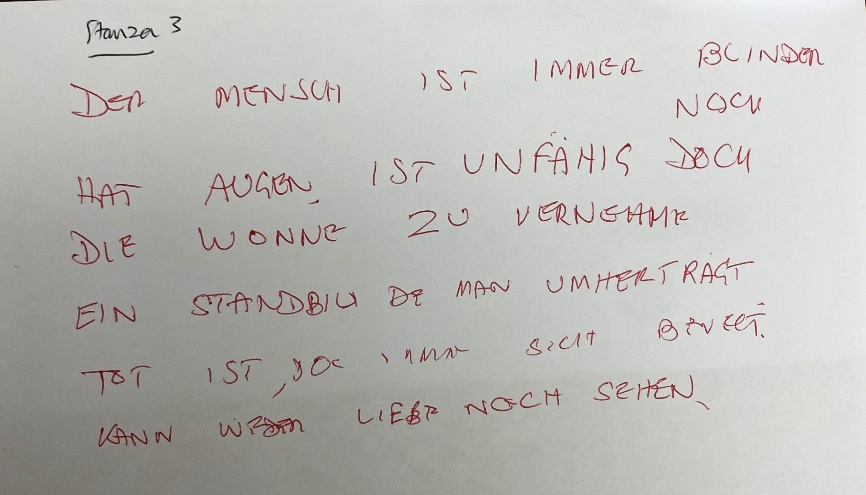 Stanza 3
DER MENSCH IST IMMER BLINDER
NOCH
HAT AUGEN, IST UNFÄHIG DOCH
DIE WONNE ZU VERNEHME
EIN STANDBILD DE MAN UMHERTRÄGT
TOT IST, DOC IMMR SICH BEWEGT.
KANN WEDER LIEBE NOCH SEHEN,